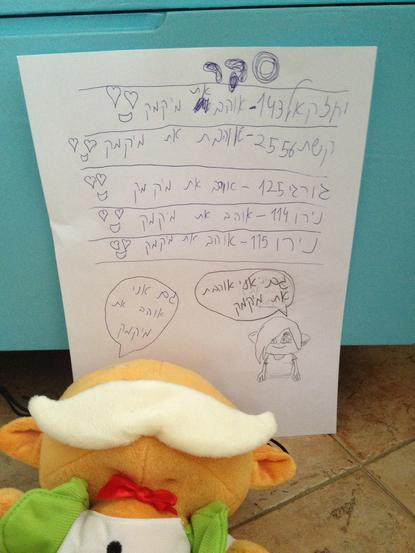 סקר
יחזקאל 143 - אוהב את מיקמק
קשת 2556 - אוהבת את מיקמק
גורגי 125 - אוהב את מיקמק
נירו 114 - אוהב את מיקמק
נירו 115 - אוהב את מיקמק
גם אני אוהבת
את מיקמק
גם אני
אוהב את
מיקמק